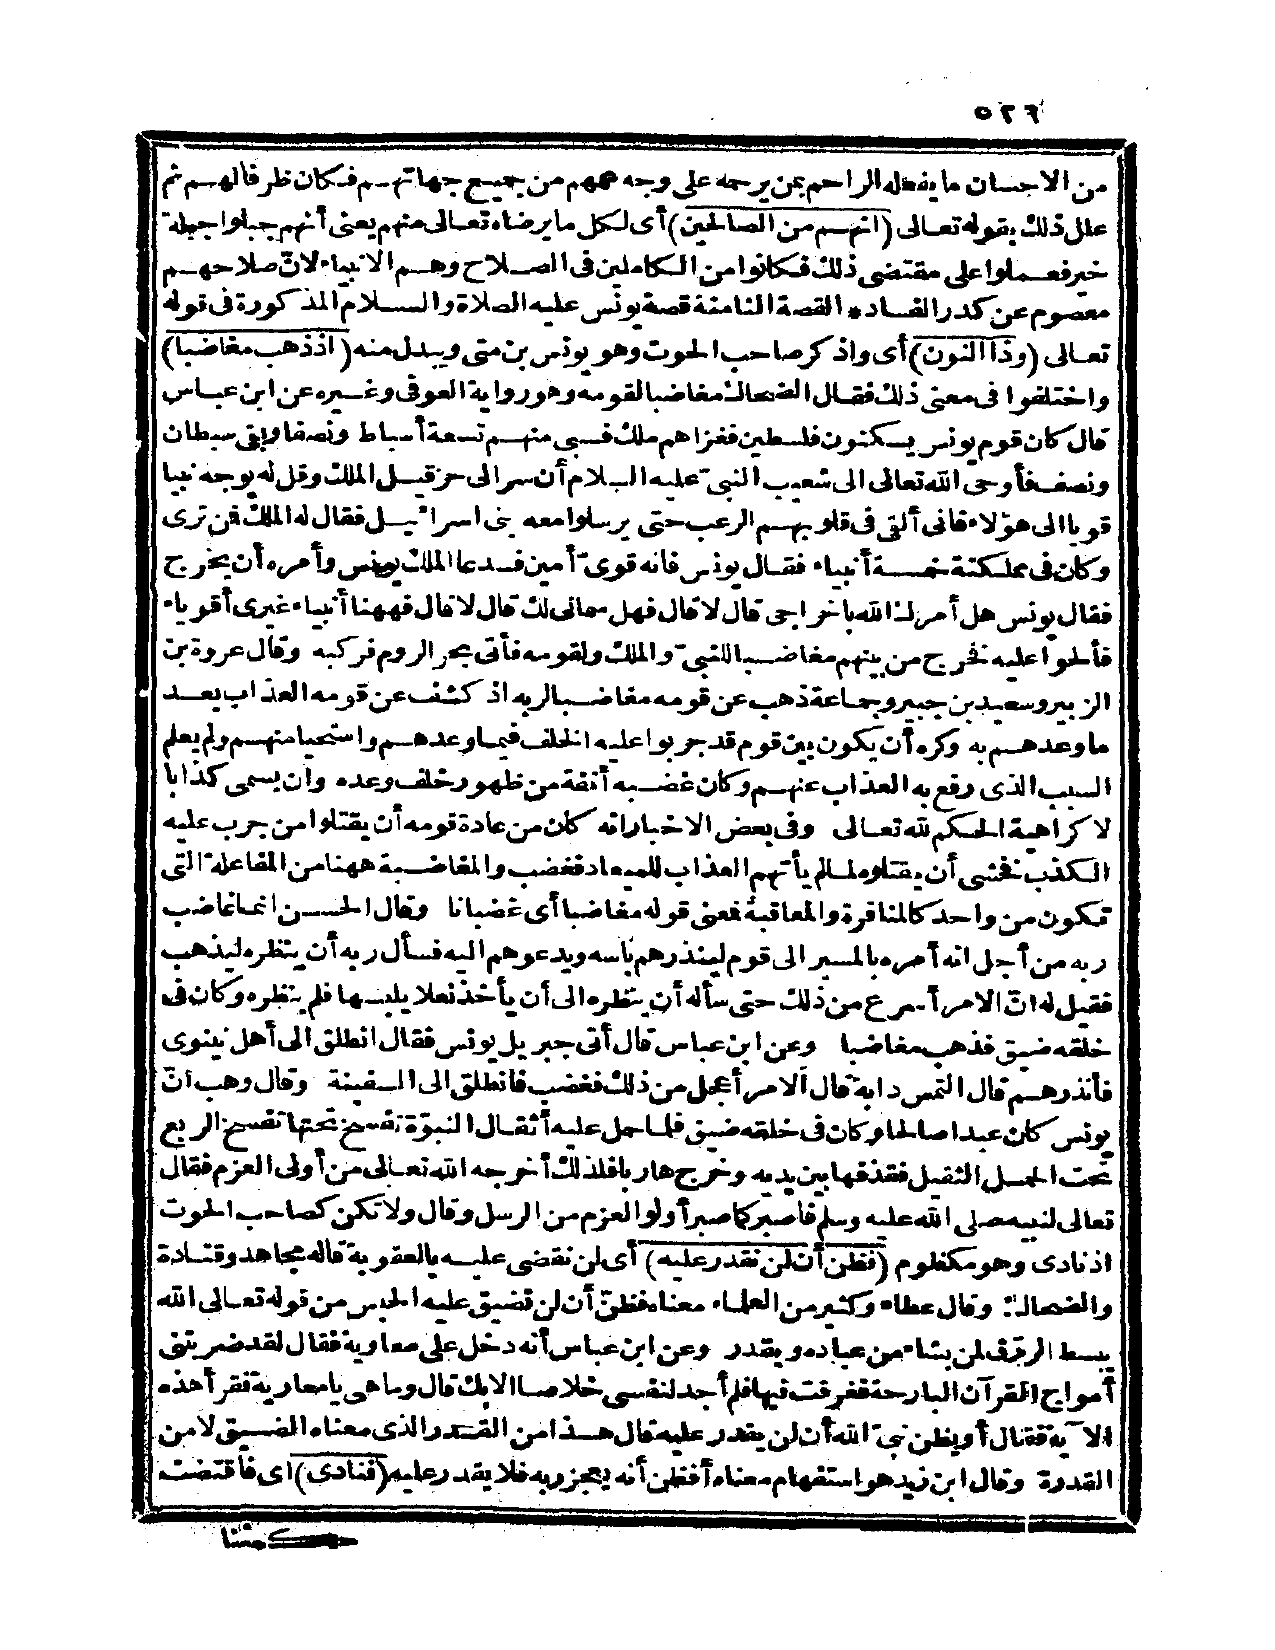 ٥٢٦
من الاحسان ما يفعله الراحم بمن يرحمه على وجه عمهم من جميع جهاتهم فكان ظرفا لهم ثم
علل ذلك بقوله تعالى (انهم من الصالحين) أى لكل ما يرضاه تعالى منهم يعنى أنهم جبلوا جبلة
خير فعملوا على مقتضى ذلك فكانوا من الكاملين فى الصلاح وهم الانبياء لانّ صلاحهم
معصوم عن كدر الفساد * القصة الثامنة قصة يونس عليه الصلاة والسلام المذكورة فى قوله
تعالى (وذا النون) أى واذكر صاحب الحوت وهو يونس بن متى ويبدل منه (اذ ذهب مغاضبا)
واختلفوا فى معنى ذلك فقال الضحاك مغاضبا لقومه وهو رواية العوفى وغيره عن ابن عباس
قال كان قوم يونس يسكنون فلسطين فغزاهم ملك فسبى منهم تسعة أسباط ونصفا وبقى سبطان
ونصف فأوحى الله تعالى الى شعيب النبىّ عليه السلام أن سر الى حزقيل الملك وقل له يوجه نبيا
قويا الى هؤلاء فانى ألقى فى قلوبهم الرعب حتى يرسلوا معه بنى اسرائيل فقال له الملك فمن ترى
وكان فى مملكته خمسة أنبياء فقال يونس فانه قوىّ أمين فدعا الملك يونس وأمره أن يخرج
فقال يونس هل أمرك الله باخراجى قال لا قال فهل سمانى لك قال لا قال فههنا أنبياء غيرى أقوياء
فألحوا عليه فخرج من بينهم مغاضبا للنبىّ والملك ولقومه فأتى بحر الروم فركبه وقال عروة بن
الزبير وسعيد بن جبير وجماعة ذهب عن قومه مغاضبا لربه اذ كشف عن قومه العذاب بعد
ما وعدهم به وكره أن يكون بين قوم قد جربوا عليه الخلف فيما وعدهم واستحيا منهم ولم يعلم
السبب الذى رفع به العذاب عنهم وكان غضبه أنفة من ظهور خلف وعده وان يسمى كذابا
لا كراهية الحكم لله تعالى وفى بعض الاخبار انه كان من عادة قومه أن يقتلوا من جرب عليه
الكذب فخشى أن يقتلوه لما لم يأتهم العذاب للميعاد فغضب والمغاضبة ههنا من المفاعلة التى
تكون من واحد كالمنافرة والمعاقبة فمعنى قوله مغاضبا أى غضبانا وقال الحسن انما غاضب
ربه من أجل انه أمره بالمسير الى قوم لينذرهم بأسه ويدعوهم اليه فسأل ربه أن ينظره ليذهب
فقيل له انّ الامر أسرع من ذلك حتى سأله أن ينظره الى أن يأخذ نعلا يلبسها فلم ينظره وكان فى
خلقه ضيق فذهب مغاضبا وعن ابن عباس قال أتى جبريل يونس فقال انطلق الى أهل نينوى
فأنذرهم قال ألتمس دابة قال الامر أعجل من ذلك فغضب فانطلق الى السفينة وقال وهب انّ
يونس كان عبدا صالحا وكان فى خلقه ضيق فلما حمل عليه أثقال النبوّة تفسخ تحتها تفسخ الربع
تحت الحمل الثقيل فقذفها بين يديه وخرج هاربا فلذلك أخرجه الله تعالى من أولى العزم فقال
تعالى لنبيه صلى الله عليه وسلم فاصبر كما صبر أولوا العزم من الرسل وقال ولا تكن كصاحب الحوت
اذ نادى وهو مكظوم (فظن أن لن نقدر عليه) أى لن نقضى عليه بالعقوبة قاله مجاهد وقتادة
والضحاك وقال عطاء وكثير من العلماء معناه فظنّ أن لن تضيق عليه الحبس من قوله تعالى الله
يبسط الرزق لمن يشاء من عباده ويقدر وعن ابن عباس أنه دخل على معاوية فقال لقد ضربتنى
أمواج القرآن البارحة فغرقت فيها فلم أجد لنفسى خلاصا الا بك قال وما هى يا معاوية فقرأ هذه
الآية فقال أويظن نبىّ الله أن لن يقدر عليه قال هذا من القدر الذى معناه الضيق لا من
القدرة وقال ابن زيد هو استفهام معناه أفظن أنه يعجز ربه فلا يقدر عليه (فنادى) اى فاقتضت
حكمتنا